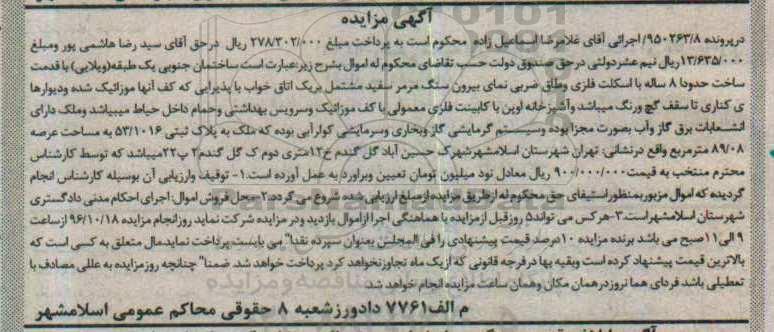 آگهی مزایده
درپرونده ۹۵۰۲۶۳/۸/ اجرائی آقای غلامرضا اسماعیل زاده محکوم است به پرداخت مبلغ ۲۷۸/۳۰۲/۰۰۰ ریال درحق آقای سید رضا هاشمی پور ومبلغ
۱۳/۶۳۵/۰۰۰ریال نیم عشردولتی درحق صندوق دولت حسب تقاضای محکوم له اموال بشرح زیرعبارت است ساختمان جنوبی یک طبقه(ویلایی) با قدمت
ساخت حدودا ۸ ساله با اسکلت فلزی وطاق ضربی نمای بیرون سنگ مرمر سفید مشتمل بریک اتاق خواب با پذیرایی که کف آنها موزائیک شده ودیوارها
ی کناری تا سقف گچ ورنگ میباشد وآشپزخانه اوپن با کابینت فلزی معمولی با کف موزائیک وسرویس بهداشتی وحمام داخل حیاط میباشد وملک دارای
انشعابات برق گاز وآب بصورت مجزا بوده وسیستم گرمایشی گاز وبخاری وسرمایشی کولرآبی بوده که ملک به پلاک ثبتی ۵۳/۱۰۱۶ به مساحت عرصه
۸۹/۰۸ مترمربع واقع درنشانی: تهران شهرستان اسلامشهرشهرک حسین آباد گل گندم خ۱۲متری دوم ک گل گندم۲ پ۲۲میباشد که توسط کارشناس
محترم منتخب به قیمت۹۰۰/۰۰۰/۰۰۰ ریال معادل نود میلیون تومان تعیین وبراورد به عمل آورده است.۱- توقیف وارزیابی آن بوسیله کارشناس انجام
گردیده که اموال مزبوربمنظوراستیفای حق محکوم له ازطریق مزایده ازمبلغ ارزیابی شده شروع می گردد.۲-محل فروش اموال:اجرای احکام مدنی دادگستری
شهرستان اسلامشهراست.۳-هرکس می تواند۵ روزقبل ازمزایده با هماهنگی اجرا ازاموال بازدید ودر مزایده شرکت نماید روزانجام مزایده ۹۶/۱۰/۱۸ ازساعت
۹ الی۱۱صبح می باشد برنده مزایده ۱۰درصد قیمت پیشنهادی را فی المجلس بعنوان سپرده نقدا" می بایست پرداخت نمایدمال متعلق به کسی است که
بالاترین قیمت پیشنهاد کرده است وبقیه بها درفرجه قانونی که ازیک ماه تجاوزنخواهد کرد پرداخت خواهد شد. ضمنا" چنانچه روزمزایده به عللی مصادف با
تعطیلی باشد فردای هما نروزدرهمان مکان وهمان ساعت مزایده انجام خواهد شد.
م الف۷۷۶۱ دادورزشعبه ۸ حقوقی محاکم عمومی اسلامشهر